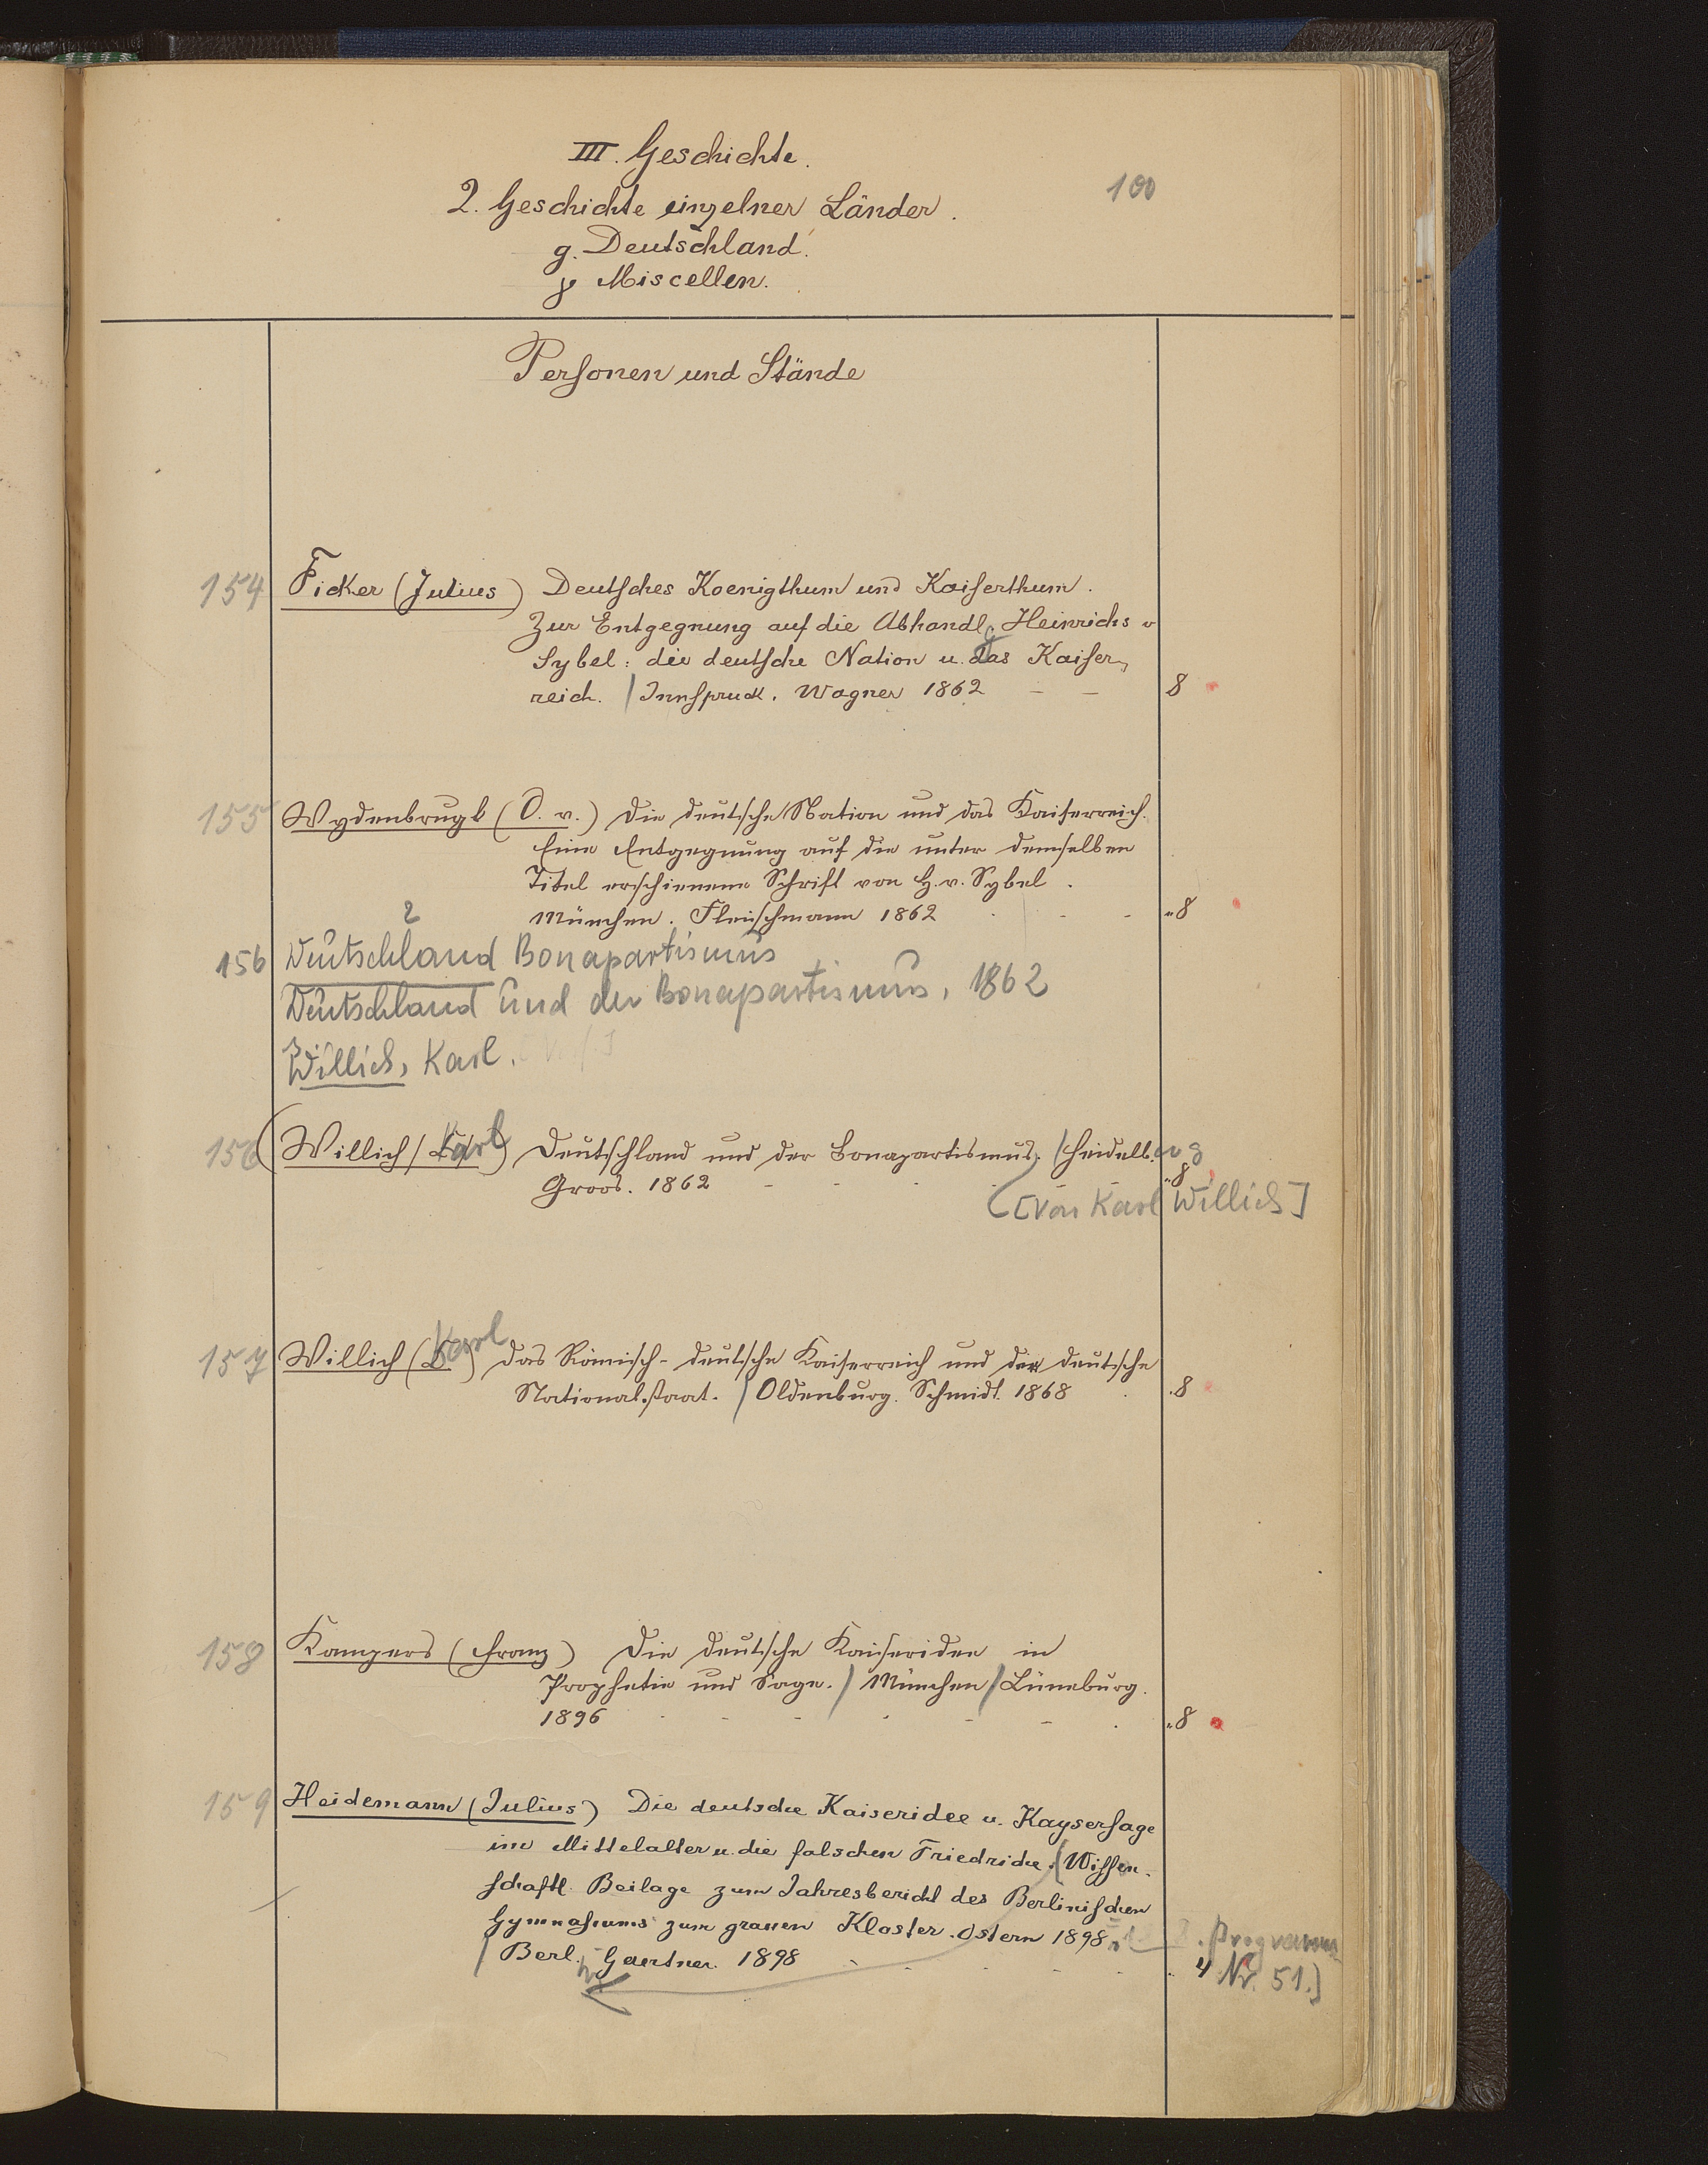 III. Geschichte.
100
2. Geschichte einzelner Länder.
g. Deutschland.
γ Miscellen.
Personen und Stände
154 Ficker (Julius) Deutsches Koenigthum und Kaiserthum.
Zur Entgegnung auf die Abhandlg Heinrichs v
Sybel: die deutsche Nation u. das Kaiser-
reich. / Innspruck. Wagner 1862 - - 8
155 Wydenbrugk (O. v.) Die deutsche Nation und das Kaiserreich.
Eine Entgegnung auf die unter demselben
Titel erschienene Schrift von H. v. Sybel.
München. Fleischmann 1862 - - - "8
2
156 Deutschland Bonapartismus
Deutschland und der Bonapartismus, 1862
Willich, Karl.
156 (Willich (Karl) Deutschland und der Bonapartismus. / Heidelb.
Groos. 1862 - - - "8
[Von Karl Willich]
157 Willich (Karl) Das Römisch-deutsche Kaiserreich und der deutsche
Nationalstaat. / Oldenburg. Schmidt. 1868 . .8
158 Kampers (Franz) Die deutsche Kaiseridee in
Prophetie und Sage. / München / Lüneburg.
1896 - - - - - - . "8
159 Heidemann (Julius) Die deutsche Kaiseridee u. Kaysersage
im Mittelalter u. die falschen Friedriche. (Wissen-
schaftl. Beilage zum Jahresbericht des Berlinischen
Gymnasiums zum grauen Kloster. Ostern 1898. Programm
/ Berl. Gaertner. 1898 - - - - - " 4 Nr. 51.]